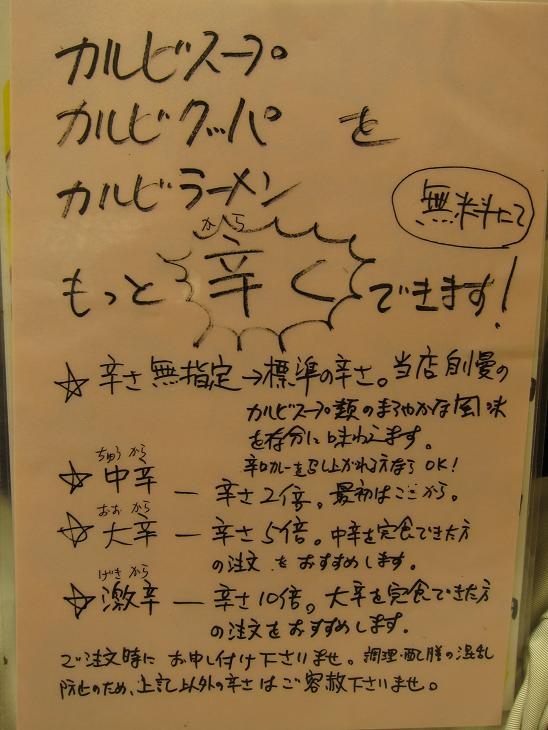 カルビスープ
カルビクッパ を
カルビラーメン
無料にて
から
もっと 辛く できます!
☆ 辛さ 無指定→標準の辛さ。当店自慢の
カルビスープ類のまろやかな風味
を存分に味わえます。
辛口カレーを召し上がれる方なら OK!
ちゅう から
☆ 中辛 ー 辛さ2倍。最初はここから。
おお から
☆ 大辛 ー 辛さ5倍。中辛を完食できた方
の注文をおすすめします。
げき から
☆ 激辛 ー 辛さ10倍。大辛を完食できた方
の注文をおすすめします。
ご注文時に お申し付け下さいませ。調理・配膳の混乱
防止のため、上記以外の辛さはご容赦下さいませ。